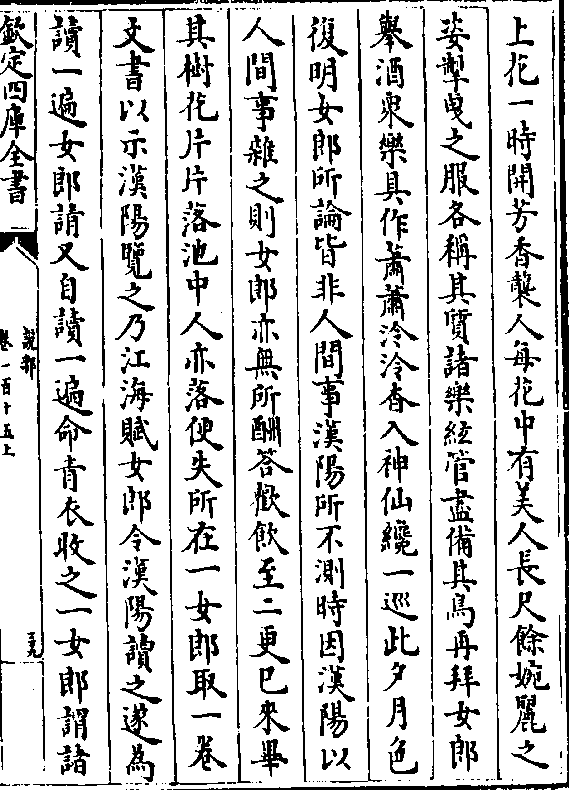 上花一時開芳香襲人每花中有美人長尺餘婉麗之
姿掣曵之服各稱其質諸樂絃管盡備其鳥再拜女郎
舉酒衆樂具作蕭蕭泠泠杳入神仙纔一巡此夕月色
復明女郎所論皆非人間事漢陽所不測時因漢陽以
人間事雜之則女郎亦無所酬答懽飲至二更巳來畢
其樹花片片落池中人亦落便失所在一女郎取一卷
文書以示漢陽覽之乃江海賦女郎令漢陽讀之遂為
讀一遍女郎請又自讀一遍命青衣收之一女郎謂諸
欽定四庫全書
說郛
卷一百十五上